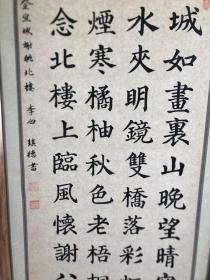 城如畫裏山晚望晴空
水夾明鏡雙橋落彩虹
煙寒橘柚秋色老梧桐
念北樓上臨風懷謝公
宣城謝朓北樓 李白 德書